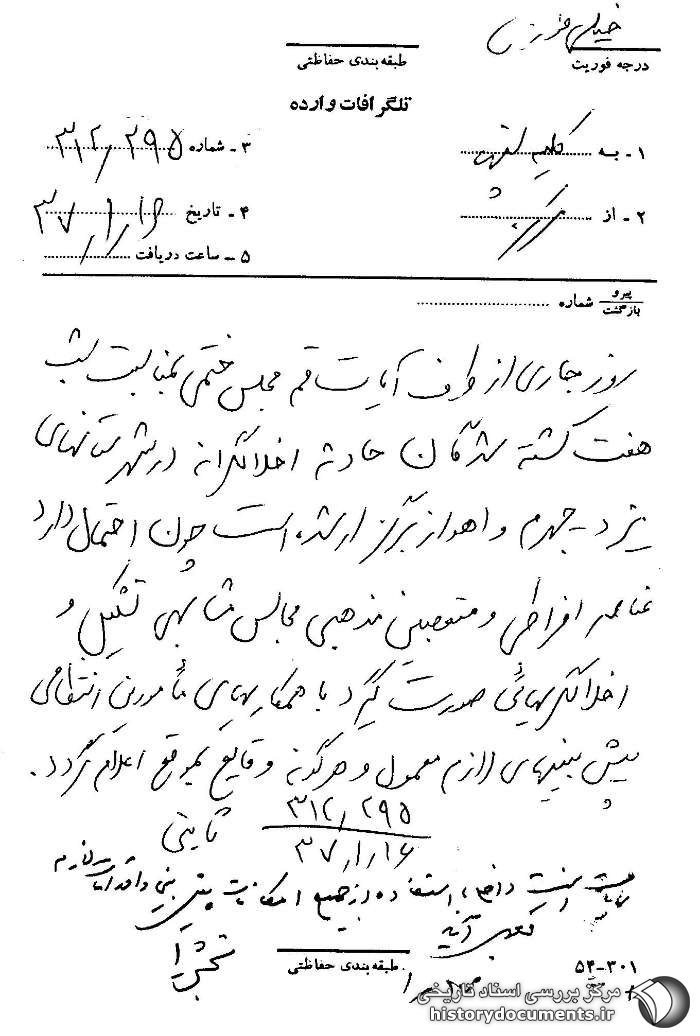 خیلی فوری
درجه فوریت
طبقه‌بندی حفاظتی
تلگرافات وارده
۱ - به کلیه
۳ - شماره ۳۱۲/۲۹۵
۲ - از مرکز
۴ - تاریخ ۳۷/۱/۱۶
۵ - ساعت دریافت
پیرو
بازگشت
شماره
روز جاری از طرف آیات قم مجلس ختمی بمناسبت شب
هفت کشته شدگان حادثه اخلالگرانه در شهرستانهای
یزد - جهرم و اهواز برگزار شده است چون احتمال دارد
عناصر افراطی و متعصبین مذهبی مجالس مشابهی تشکیل و
اخلالگریهائی صورت گیرد با همکاریهای مأمورین انتظامی
پیش بینیهای لازم معمول و هرگونه وقایع بموقع اعلام گردد.
۳۱۲/۲۹۵
۳۷/۱/۱۶
ثابتی
امنیت داخلی استفاده از جمیع امکانات پیش بینی و اقدامات لازم
بعمل آید
طبقه‌بندی حفاظتی
۵۴-۳۰۱
مرکز بررسی اسناد تاریخی
historydocuments.ir